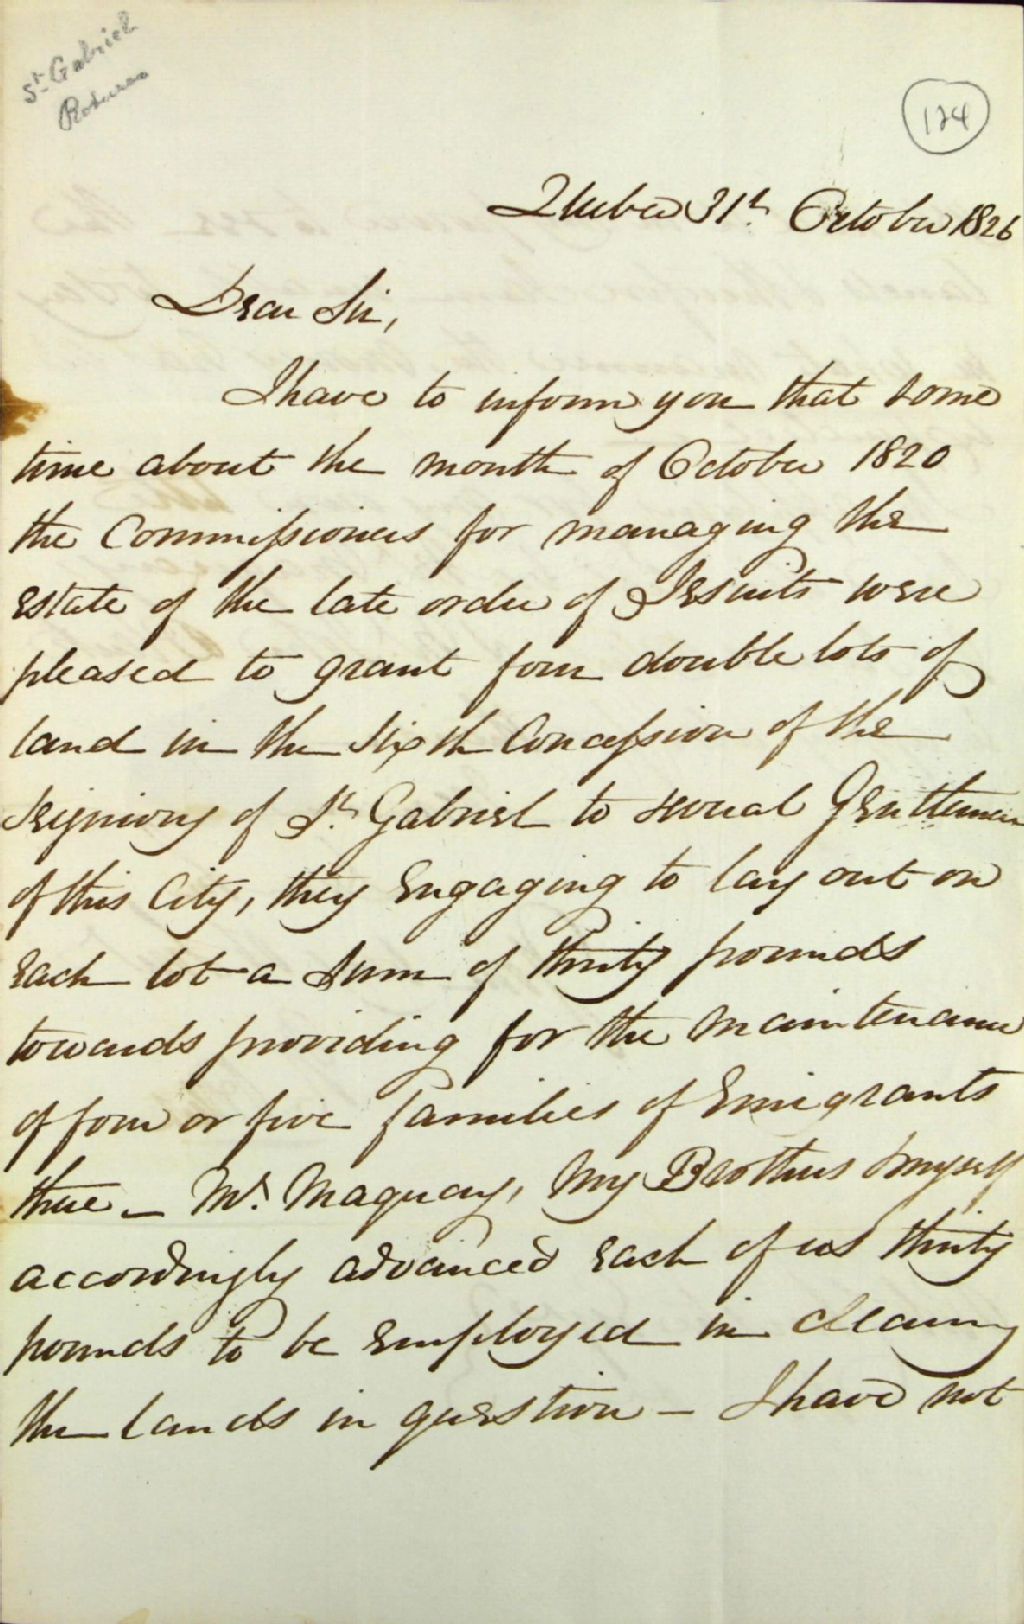 St Gabriel
Rotures
124
Quebec 31st October 1826
Dear Sir,
I have to inform you that some
time about the month of October 1820
the Commissioners for managing the
Estate of the late order of Jesuits were
pleased to grant four double lots of
land in the Sixth Concession of the
Seigniory of St Gabriel to several Gentlemen
of this City, they Engaging to lay out on
Each lot a Sum of thirty pounds
towards providing for the maintenance
of four or five families of Emigrants
there – Mr Maquay, My Brothers & myself
accordingly advanced Each of us thirty
pounds to be Employed in clearing
the lands in question – I have not